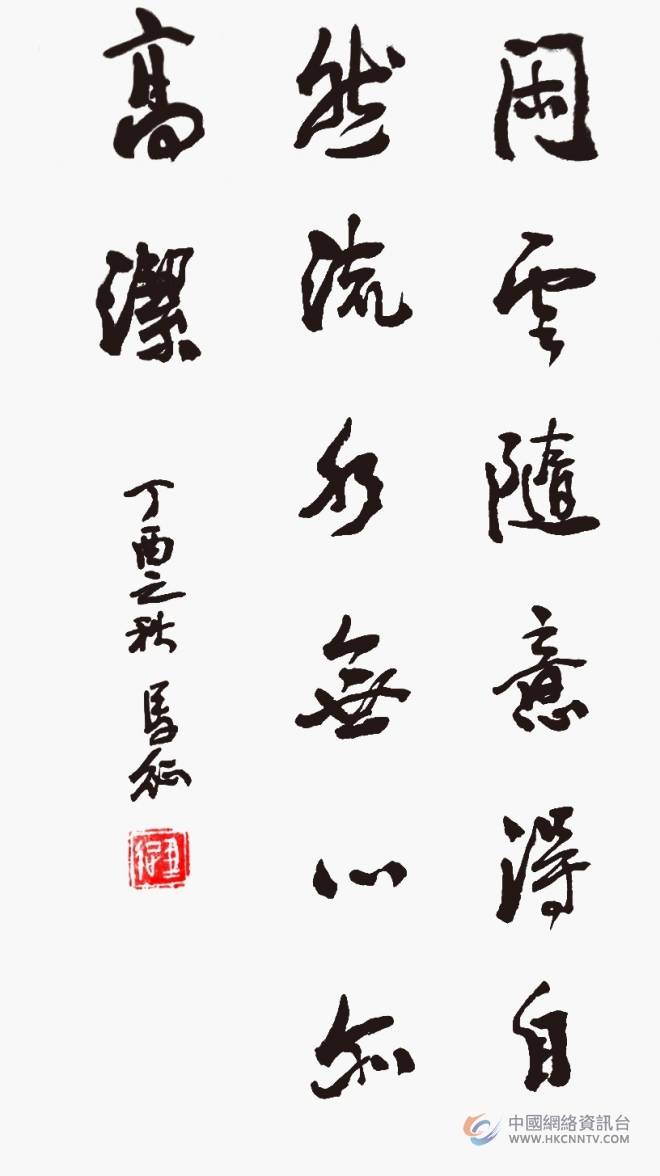 閑雲隨意得自
然流水無心亦
高潔
丁酉之秋 馬征
中國網絡資訊台
WWW.HKCNNTV.COM